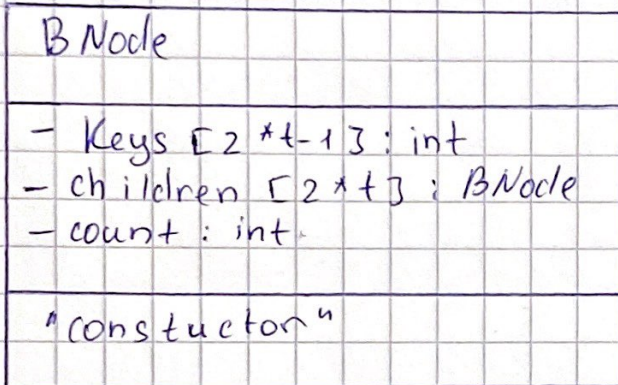 BNode
- Keys [2*t-1] : int
- children [2*t] : BNode
- count : int
"constuctor"